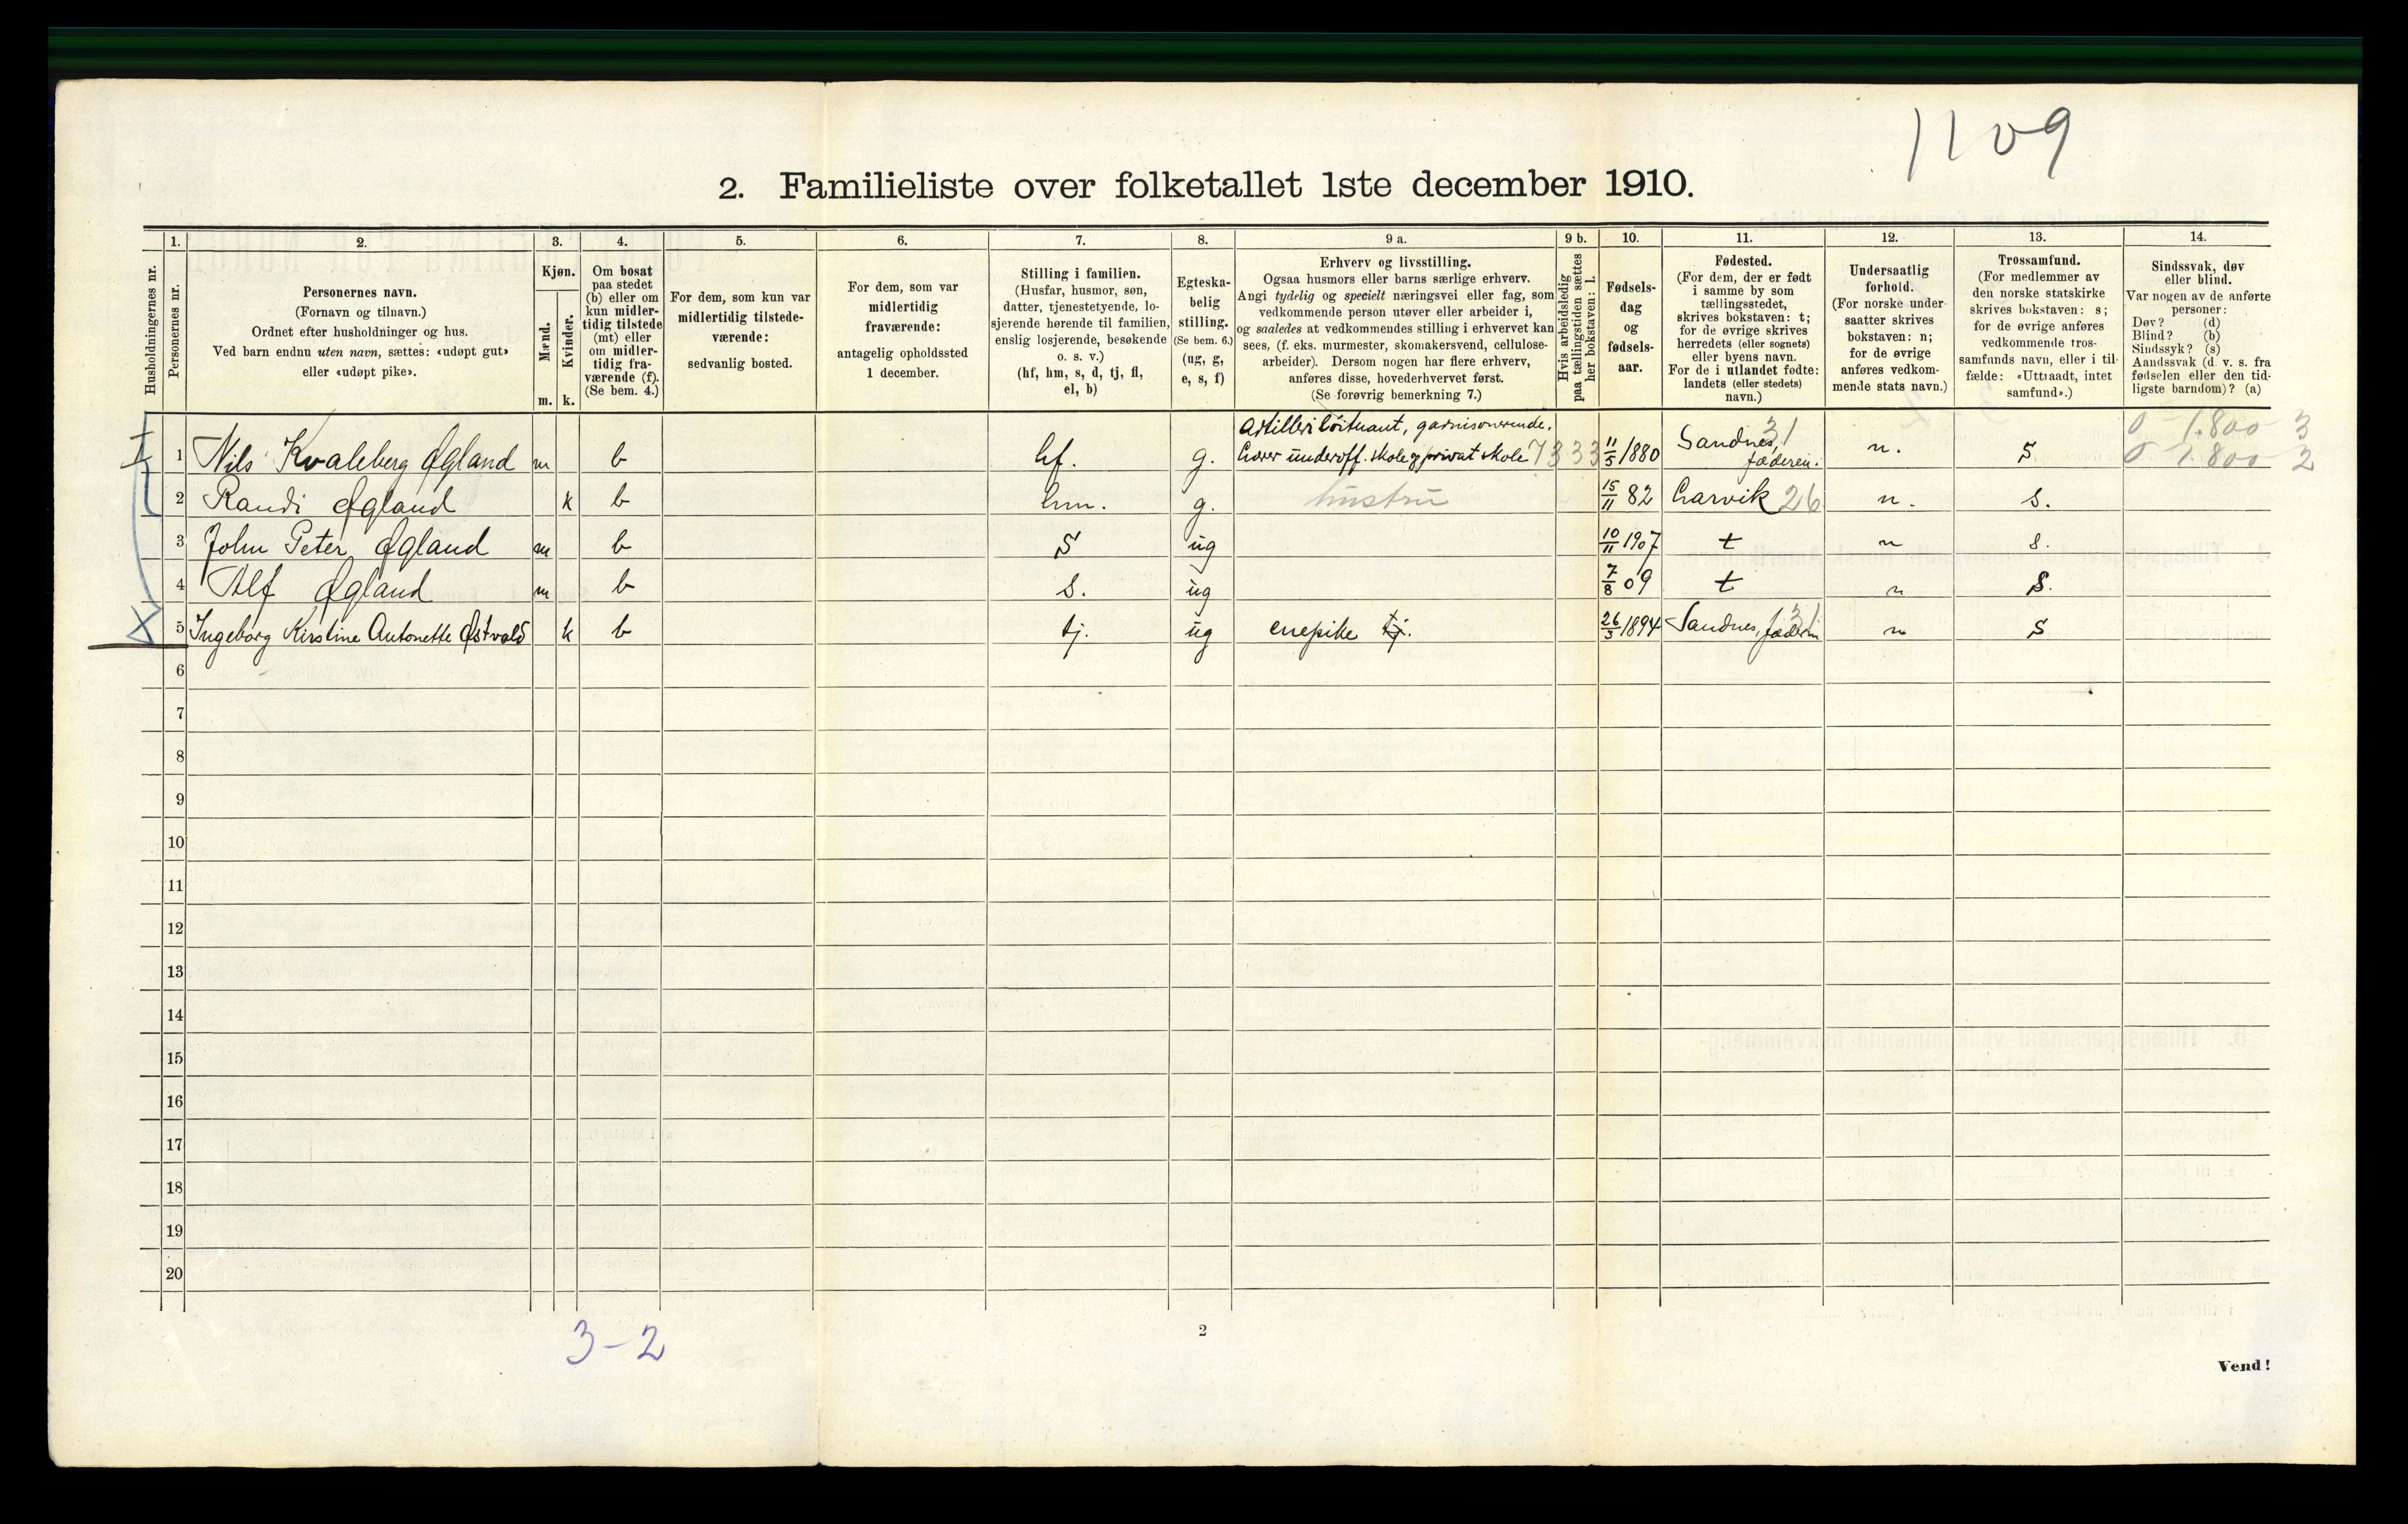 1109
2. Familieliste over folketallet 1ste december 1910.
Husholdningernes nr.
1.
Personernes nr.
2.
Personernes navn.
(Fornavn og tilnavn.)
Ordnet efter husholdninger og hus.
Ved barn endnu uten navn, sættes: «udøpt gut»
eller «udøpt pike».
3.
Kjøn.
Mænd.
m.
Kvinder.
k.
4.
Om bosat
paa stedet
(b) eller om
kun midler-
tidig tilstede
(mt) eller
om midler-
tidig fra-
værende (f).
(Se bem. 4.)
5.
For dem, som kun var
midlertidig tilstede-
værende:
sedvanlig bosted.
6.
For dem, som var
midlertidig
fraværende:
antagelig opholdssted
1 december.
7.
Stilling i familien.
(Husfar, husmor, søn,
datter, tjenestetyende, lo-
sjerende hørende til familien,
enslig losjerende, besøkende
o. s. v.)
(hf, hm, s, d, tj, fl,
el, b)
8.
Egteska-
belig
stilling.
(Se bem. 6.)
(ug, g,
e, s, f)
9 a.
Erhverv og livsstilling.
Ogsaa husmors eller barns særlige erhverv.
Angi tydelig og specielt næringsvei eller fag, som
vedkommende person utøver eller arbeider i,
og saaledes at vedkommendes stilling i erhvervet kan
sees, (f. eks. murmester, skomakersvend, cellulose-
arbeider). Dersom nogen har flere erhverv,
anføres disse, hovederhvervet først.
(Se forøvrig bemerkning 7.)
9 b.
Hvis arbeidsledig
paa tællingstiden sættes
her bokstaven: l.
10.
Fødsels-
dag
og
fødsels-
aar.
11.
Fødested.
(For dem, der er født
i samme by som
tællingsstedet,
skrives bokstaven: t;
for de øvrige skrives
herredets (eller sognets)
eller byens navn.
For de i utlandet fødte:
landets (eller stedets)
navn.)
12.
Undersaatlig
forhold.
(For norske under-
saatter skrives
bokstaven: n;
for de øvrige
anføres vedkom-
mende stats navn.)
13.
Trossamfund.
(For medlemmer av
den norske statskirke
skrives bokstaven: s;
for de øvrige anføres
vedkommende tros-
samfunds navn, eller i til-
fælde: «Uttraadt, intet
samfund».)
14.
Sindssvak, døv
eller blind.
Var nogen av de anførte
personer:
Døv? (d)
Blind? (b)
Sindssyk? (s)
Aandssvak (d. v. s. fra
fødselen eller den tid-
ligste barndom)? (a)
Artilleriløitnant, garnisonerende. 0 1.800 3
1 Nils Kvaleberg Øgland m b hf. g. Lærer underoff. skole og privat skole 7333 11/5 1880 Sandnes, Jæderen. 31 n. s 0 1.800 2
2 Randi Øgland k b hm. g. hustru 15/11 82 Larvik 26 n. s.
3 John Peter Øgland m b s ug 10/11 1907 t n s.
4 Alf Øgland m b s. ug 7/8 09 t n s.
5 Ingeborg Kirstine Antonette Østvold k b tj. ug enepike tj. 26/3 1894 Sandnes, Jæderen 31 n s
6
7
8
9
10
11
12
13
14
15
16
17
18
19
20
3-2
2
Vend!